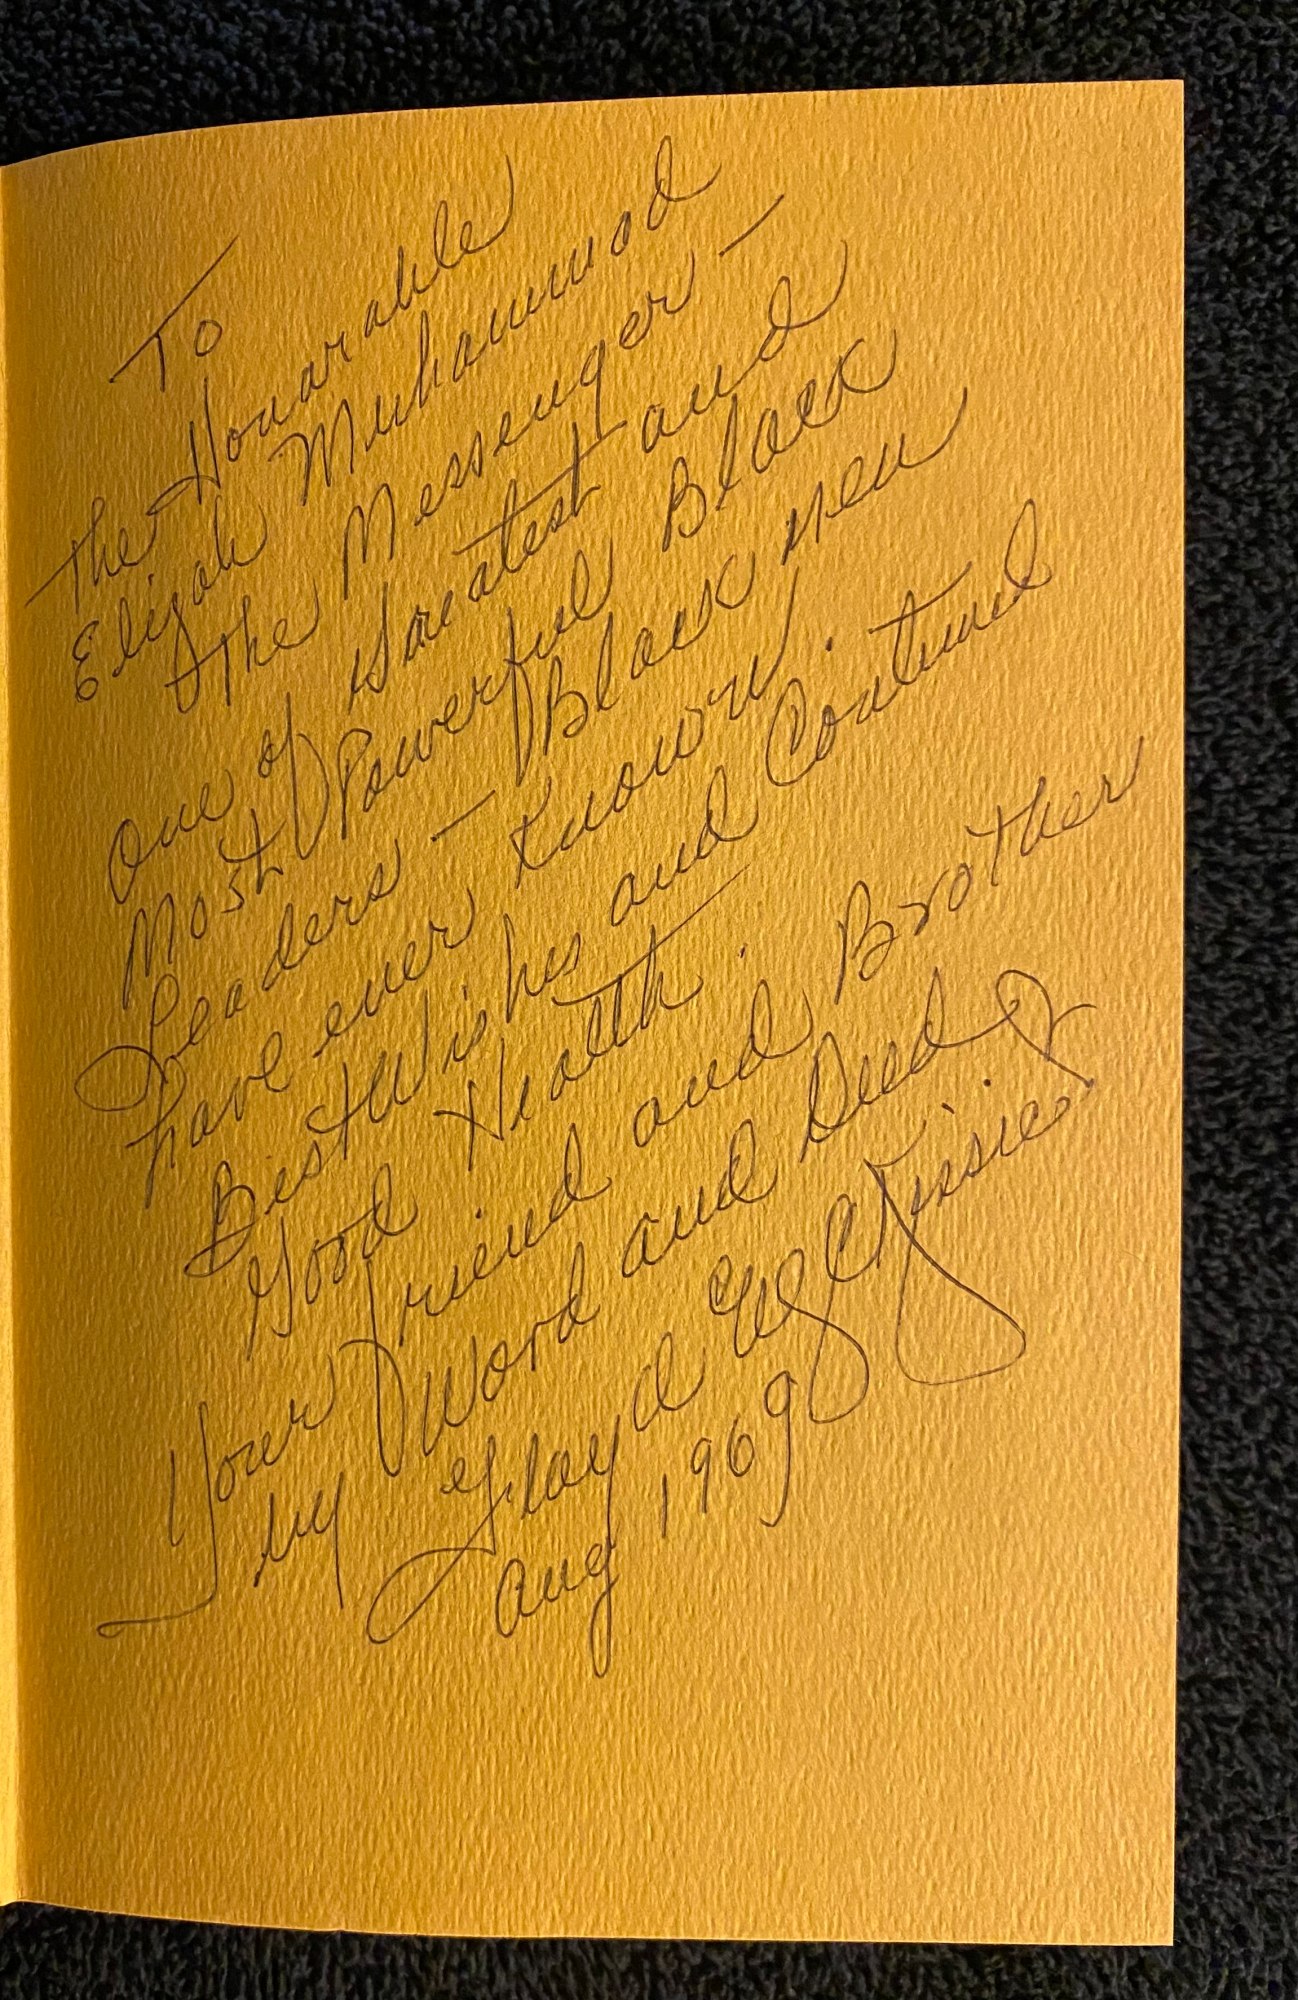 To
The Honorable
Elijah Muhammad
the Messenger —
One of Greatest and
Most Powerful Black
Leaders — Black men
have ever known.
Best Wishes and Continued
Good Health.
Your Friend and Brother
by Word and Deed
Lloyd
Aug 1969